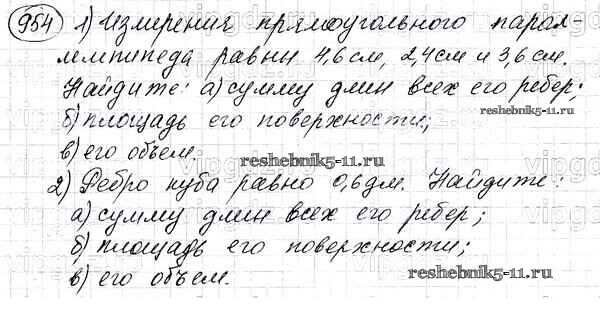 954 1) Измерения прямоугольного парал-
лелепипеда равны 4,6 см, 2,4 см и 3,6 см.
Найдите: а) сумму длин всех его ребер;
reshebnik5-11.ru
б) площадь его поверхности;
в) его объем.
reshebnik5-11.ru
2) Ребро куба равно 0,6 дм. Найдите:
а) сумму длин всех его ребер;
б) площадь его поверхности;
в) его объем.
reshebnik5-11.ru